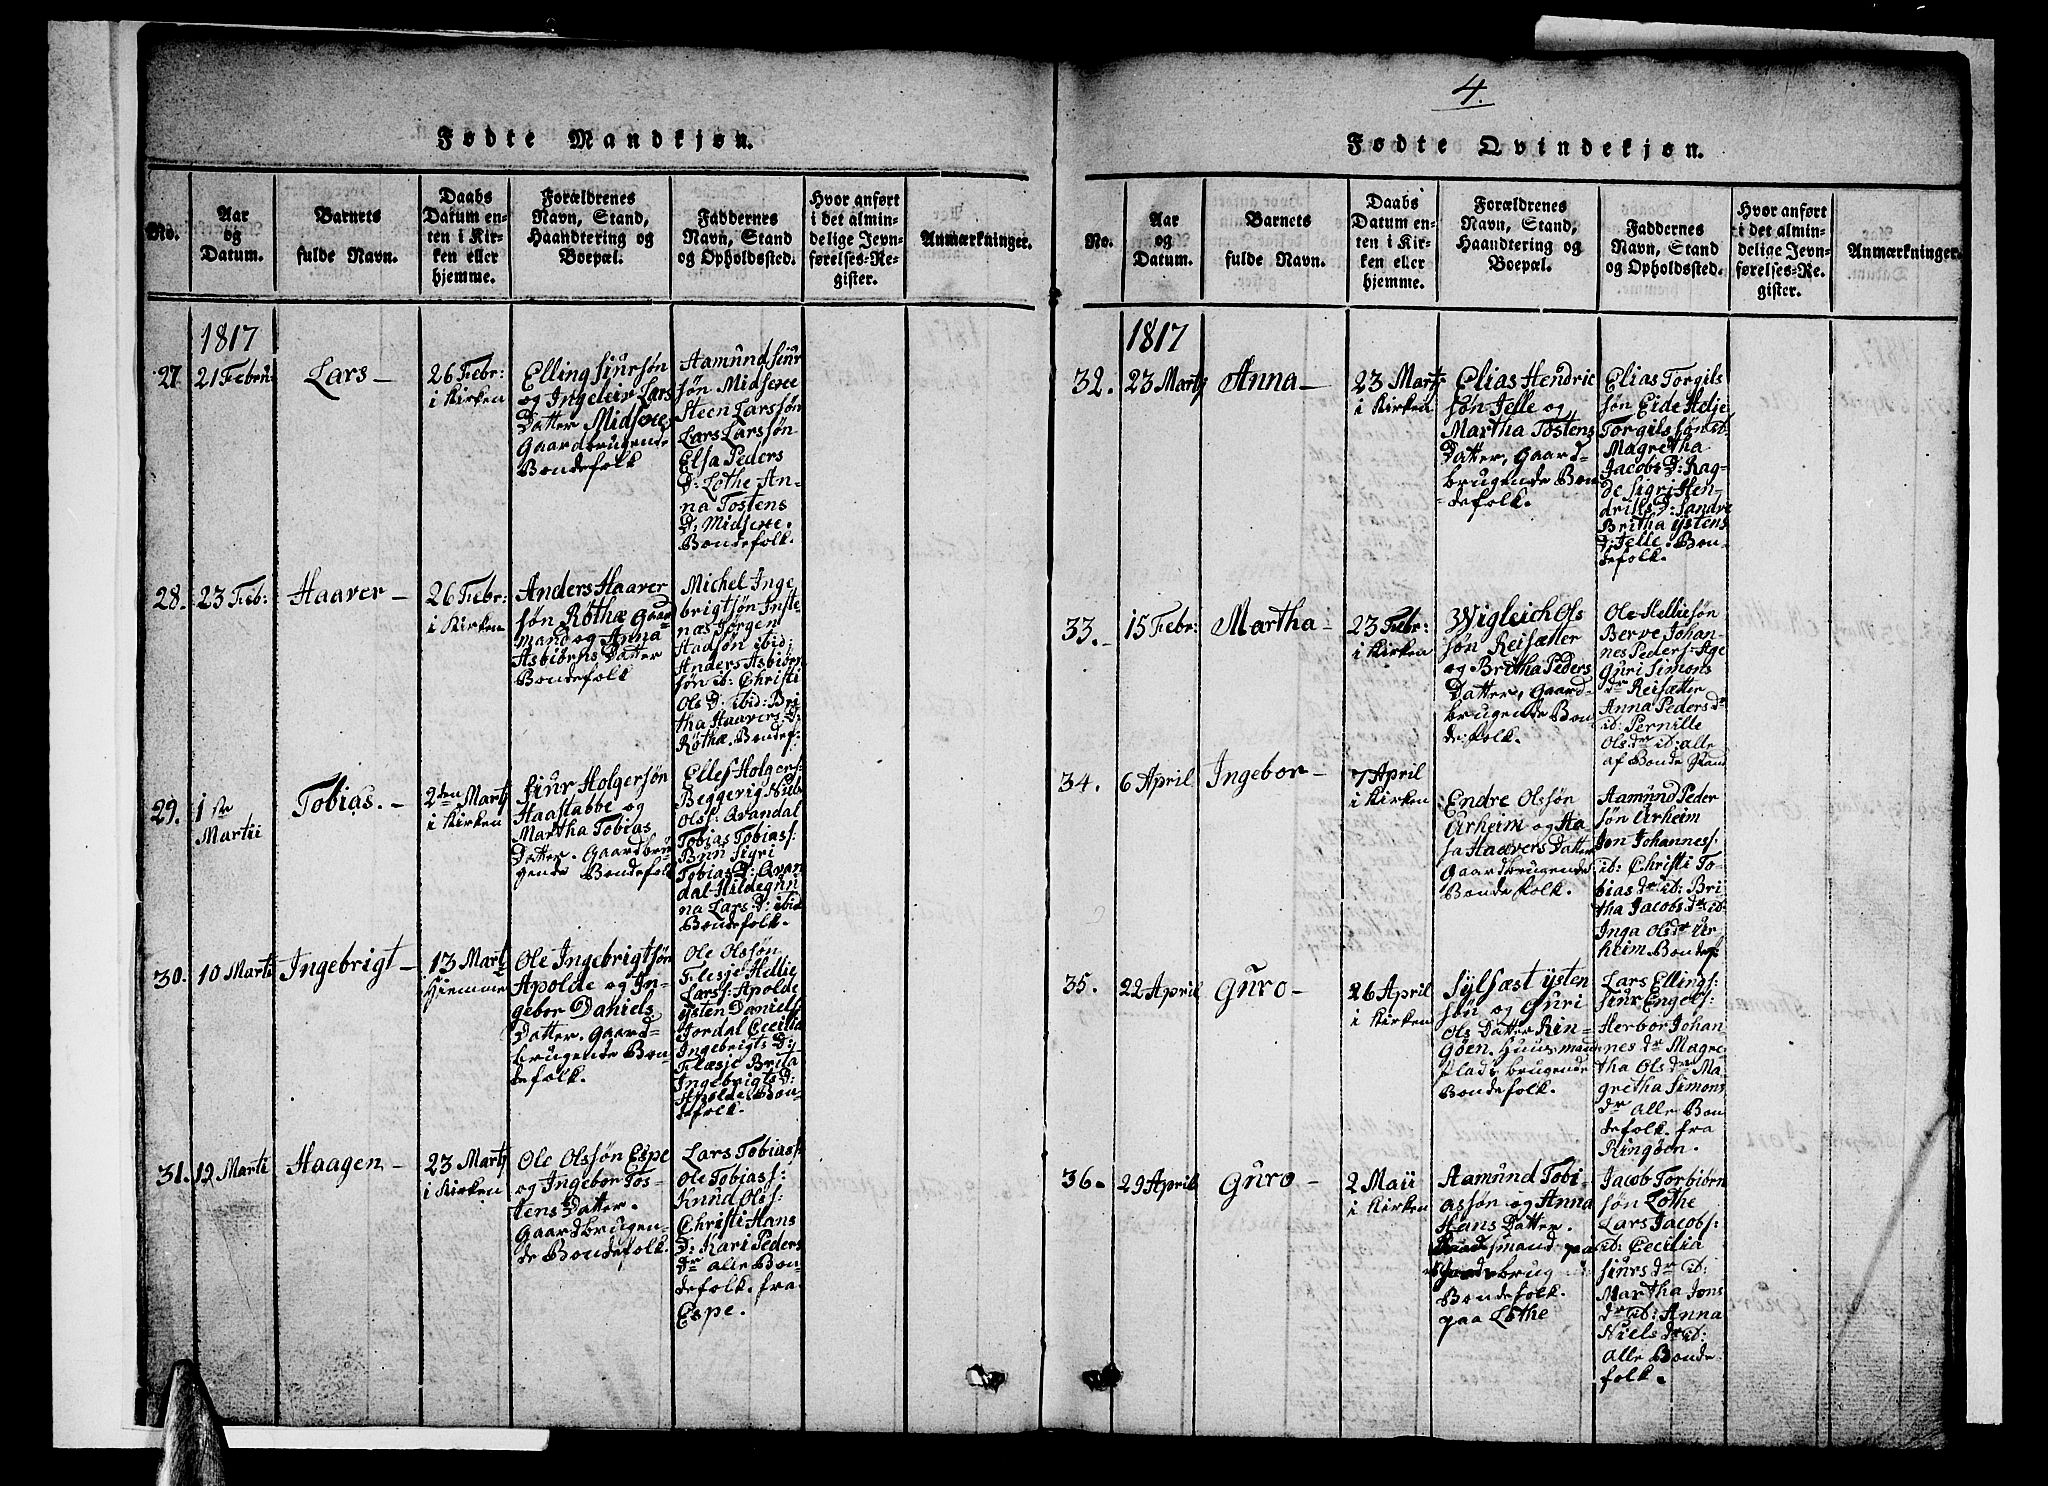 4.
Fødte Mandkjøn.
No.
Aar
og
Datum.
Barnets
fulde Navn.
Daabs
Datum en-
ten i Kir-
ken eller
hjemme.
Forældrenes
Navn, Stand,
Haandtering og
Boepæl.
Faddernes
Navn, Stand
og Opholdssted.
Hvor anført
i det almin-
delige Jevn-
førelses-Re-
gister.
Anmærkninger.
1817
27
21 Febru:
Lars
26 Febr:
i Kirken
Elling Siursøn
og Ingeleiv Lars
Datter Midseræe
Gaardbrugende
Bondefolk
Aamund Siur
søn Midseræe
Steen Larssøn
Lars Larssøn
Elsa Peders
D: Lothe An-
na Tostens
D: Midseræe.
Bondefolk.
28.
23 Feb:
Haaver
26 Febr:
i Kirken
Anders Haaver
søn Røthæ Gaar
mand og Anna
Asbiørns Datter
Bondefolk
Michel Inge
brigtsøn Inste
næs Jørgen
Aadsøn ibid:
Anders Asbiørn
søn ib: Christi
Ols D: ibid: Bri
tha Haavers D:
Røthæ. Bondef:
29.
1 ste
Martii
Tobias.
2den Martj
i Kirken
Siur Holgersøn
Haastabbe og
Martha Tobias
Datter. Gaardbrü
gende Bondefolk
Elles Holgers:
Beggevig Niels
Ols: Qvandal
Tobias Tobias:
Bnn Sigri
Tobias D: Qvan
dal Hildegün
na Lars D: ibid
Bondefolk.
30.
10 Marti
Ingebrigt
13 Marti
Hiemme
Ole Ingebrigtsøn
Apolde og In-
gebor Daniels
Datter. Gaard-
brugende Bon-
defolk.
Ole Olssøn
Flesje Hellie
Lars: Apolde
ysten Daniels
Jordal Cecilia
Ingebrigts D:
Flæsje Brita
Ingebrigts D:
Apolde Bon-
defolk.
31.
19 Marti
Haagen
23 Martj
i Kirken
Ole Olssøn Espe
og Ingebor Tos-
tens Datter.
Gaardbrugen-
de Bondefolk.
Lars Tobias:
Ole Tobias:
Knud Ols:
Christi Hans
D: Kari Peders
Dr alle Bon-
defolk. fra
Espe.
Fødte Qvindekjøn.
No.
Aar
og
Datum.
Barnets
fulde Navn.
Daabs
Datum en-
ten i Kir-
ken eller
hjemme.
Forældrenes
Navn, Stand,
Haandtering og
Boepæl.
Faddernes
Navn, Stand
og Opholdssted.
Hvor anført
i det almin-
delige Jevn-
førelses-Re-
gister.
Anmærkninger.
1817
32.
23 Martj
Anna
23 Martj
i Kirken
Elias Hendric
søn Jelle og
Martha Tostens
Datter, Gaard-
brugende Bon
defolk.
Elias Torgils
søn Eide Helje
Torgilssøn ib.
Magretha
Jacobs D: Rag-
de Sigri Hen-
driks D: Sandve
Britha ystens
D: Jelle. Bon-
defolk.
33.
15 Febr:
Martha
23 Febr:
i Kirken
Wigleich Ols
søn Reisæter
og Britha Peders
Datter, Gaard-
brugende Bon-
defolk.
Ole Helliesøn
Berve Johan-
nes Peders: Age
Guri Simons
dr Reisætter
Anna Peders dr
ib: Pernille
Ols dr ib: alle
af Bonde Stand
34.
6 April
Ingebor
7 April
i Kirken
Endre Olssøn
Urheim og Aa-
sa Haavers Datter
Gaardbrugende
Bondefolk.
Aamünd Peder
søn Urheim
Jon Johannes:
ib: Christi To-
bias dr ib: Bri
tha Jacobs dr ib:
Inga Ols dr Ur
heim Bondef:
35.
22 April
Guro
26 April
i Kirken
Sylfæst ysten
søn og Guri
Ols Datter Rin-
gøen. Huusmand
plads brugende
Bondefolk.
Lars Ellings:
Siur Engels:
Herbor Johan
nes dr Magre
tha Ols dr Ma
gretha Simons
dr alle Bon
defolk. fra
Ringøen.
36.
29 April
Guro
2 Maii
i Kirken
Aamünd Tobi-
assøn og Anna
Hans Datter.
smand paa
brug
Bondefolk.
paa Lothe
Jacob Torbiørn
søn Lothe
Lars Jacobs:
ib: Cecilia
Siurs dr ib:
Martha Jons
dr ib: Anna
Niels dr ib:
alle Bonde-
folk.